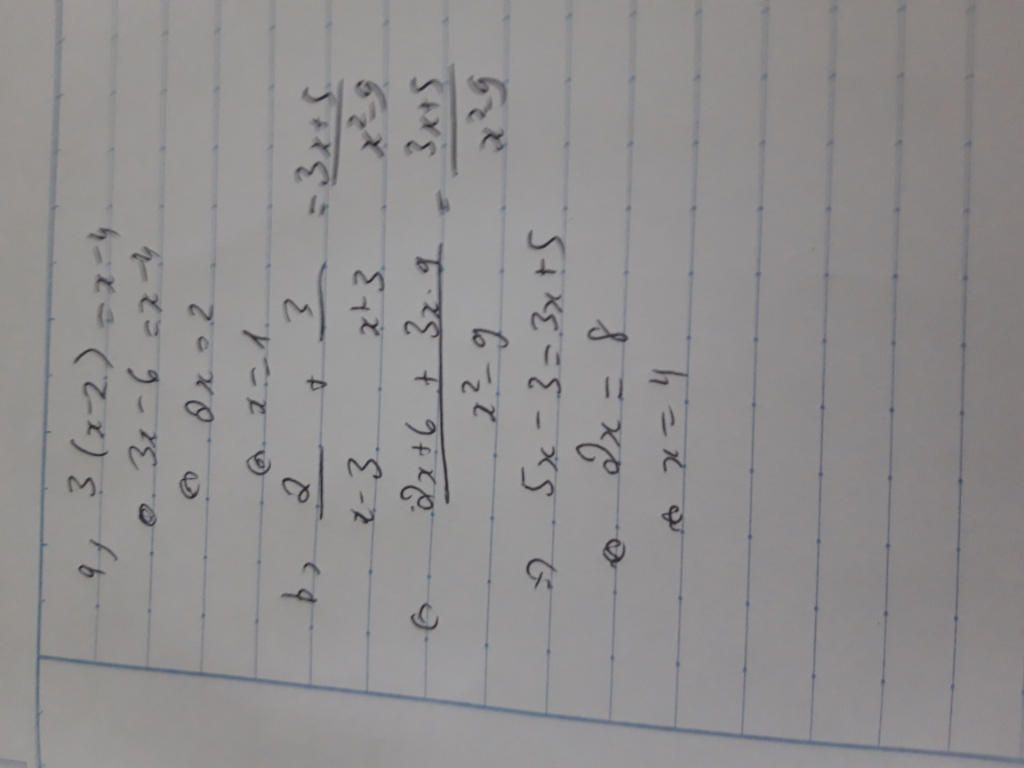 a, 3(x-2) = x-4
⇔ 3x - 6 = x - 4
⇔ 2x = 2
⇔ x = 1
b, 2/(x-3) + 3/(x+3) = (3x+5)/(x²-9)
⇔ (2x+6 + 3x-9)/(x²-9) = (3x+5)/(x²-9)
⇒ 5x - 3 = 3x + 5
⇔ 2x = 8
⇔ x = 4